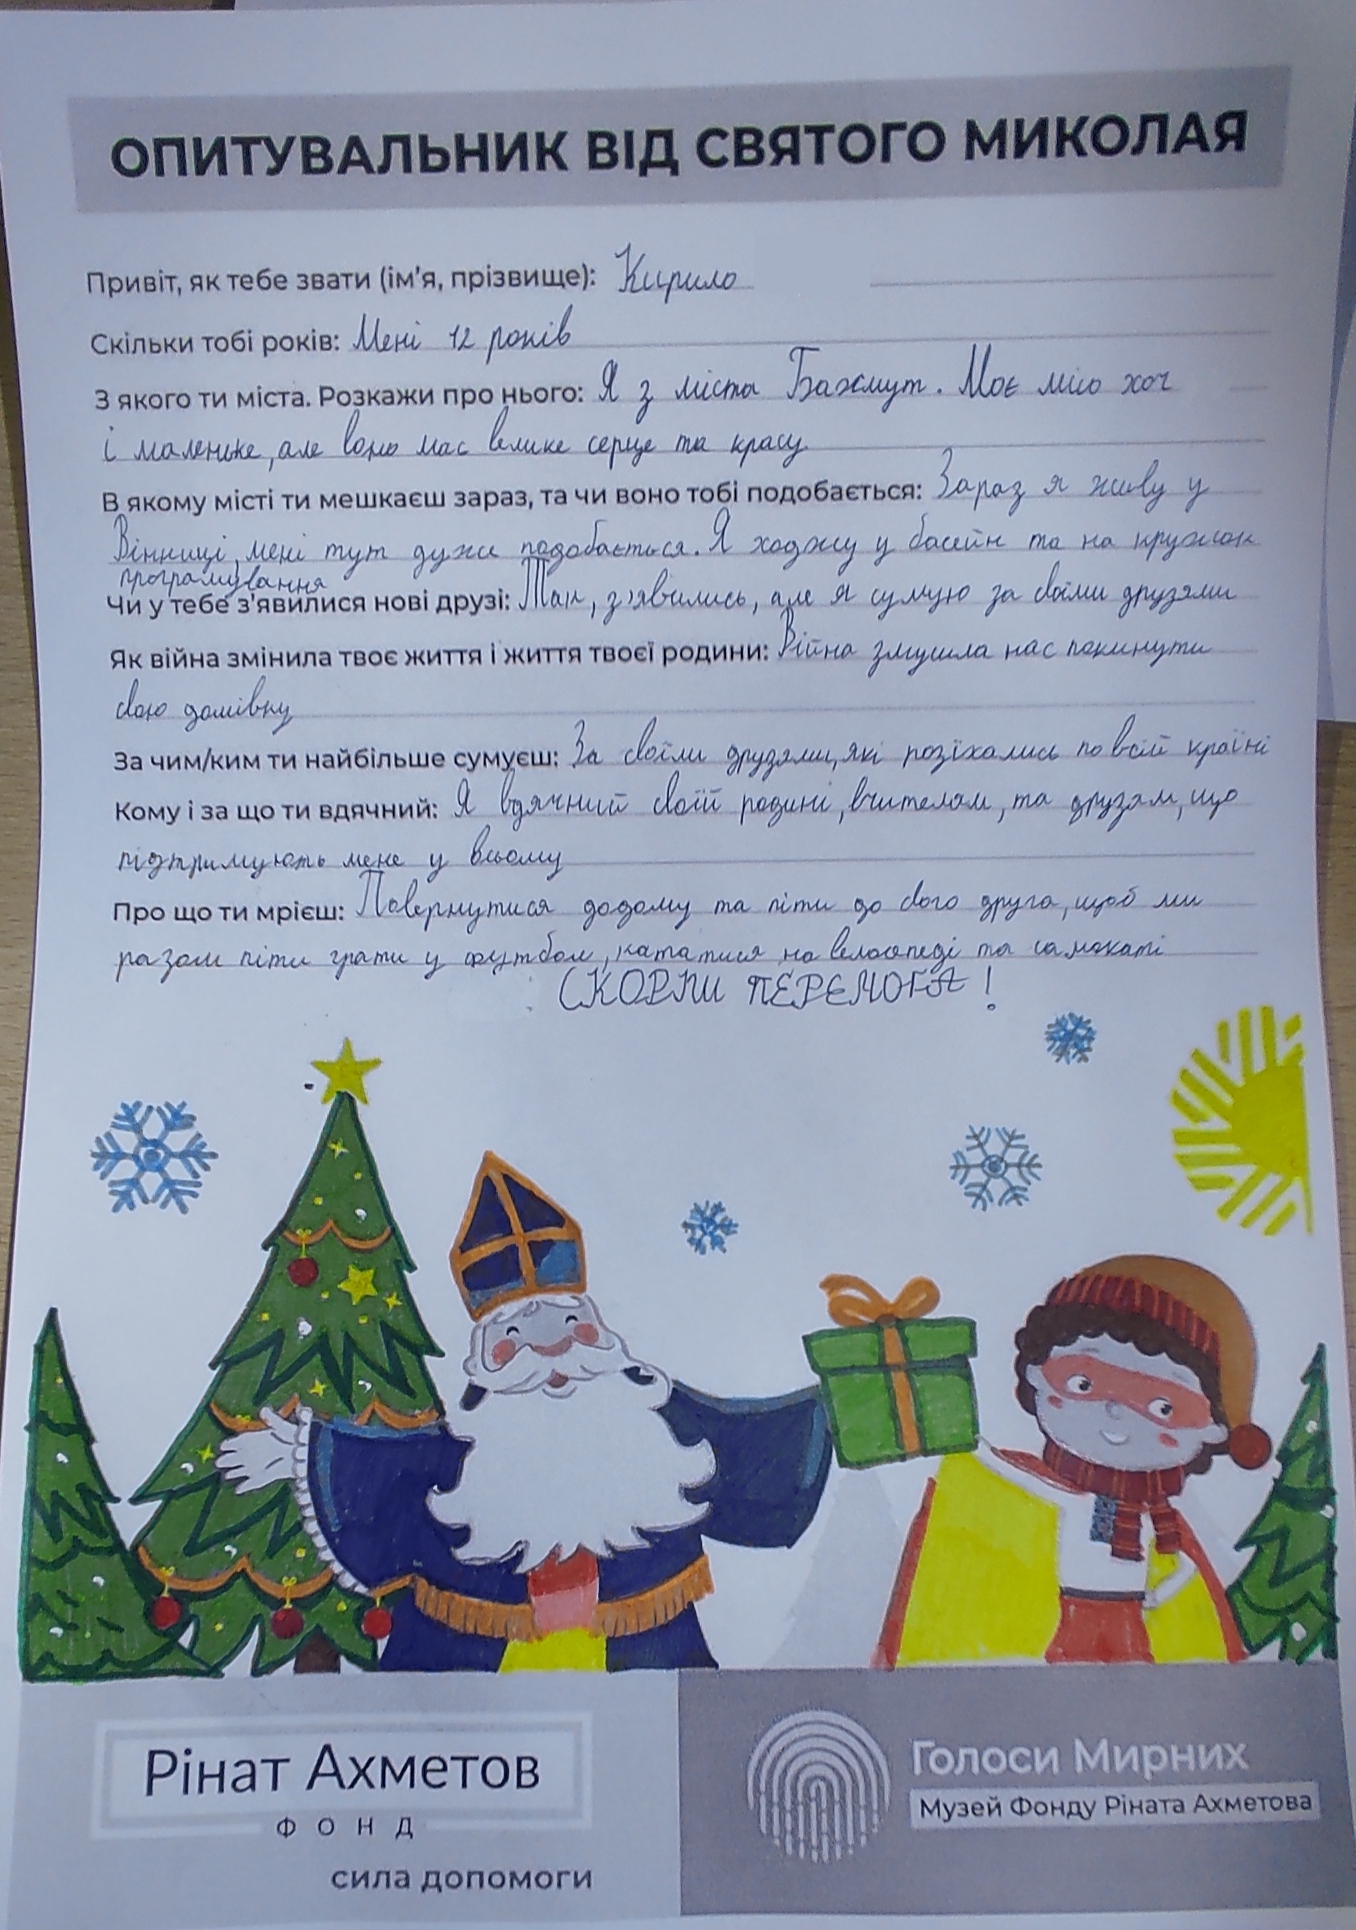 ОПИТУВАЛЬНИК ВІД СВЯТОГО МИКОЛАЯ
Привіт, як тебе звати (ім'я, прізвище): Кирило
Скільки тобі років: Мені 12 років
З якого ти міста. Розкажи про нього: Я з міста Бахмут. Моє місо хоч
і маленьке, але воно має велике серце та красу
В якому місті ти мешкаєш зараз, та чи воно тобі подобається: Зараз я живу у
Вінниці, мені тут дуже подобається. Я ходжу у басейн та на кружок
програмування
Чи у тебе з'явилися нові друзі: Так, з'явились, але я сумую за своїми друзями
Як війна змінила твоє життя і життя твоєї родини: Війна змушила нас покинути
свою домівку
За чим/ким ти найбільше сумуєш: За своїми друзями, які розїхались по всій країні
Кому і за що ти вдячний: Я вдячний своїй родині, вчителям, та друзям, що
підтримують мене у всьому
Про що ти мрієш: Повернутися додому та піти до свого друга, щоб ми
разом піти грати у футбол, кататися на велосипеді та самокаті
СКОРІШ ПЕРЕМОГА!
Рінат Ахметов
ФОНД
сила допомоги
Голоси Мирних
Музей Фонду Ріната Ахметова